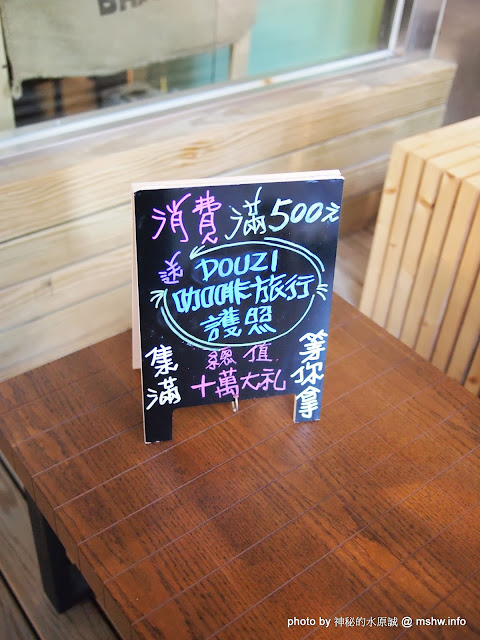 BRA
消費滿500元
送
DOUZI
咖啡旅行
護照
集滿
總值
十萬大礼
等你拿
photo by 神秘的水原誠 @ mshw.info